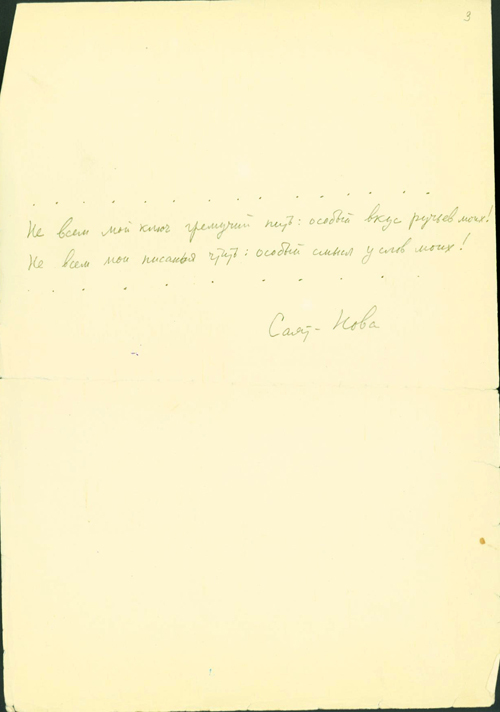 3
. . . . . . . . . . . . . .
Не всем мой ключ гремучий пить: особый вкус ручьев моих!
Не всем мои писанья чтить: особый смысл у слов моих!
. . . . . . . . . . . .
Саят-Нова